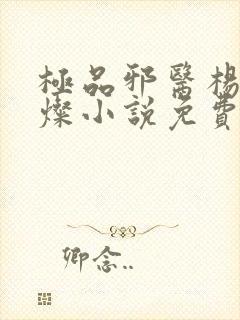 極品邪醫楊
燦小說免費
卿念..